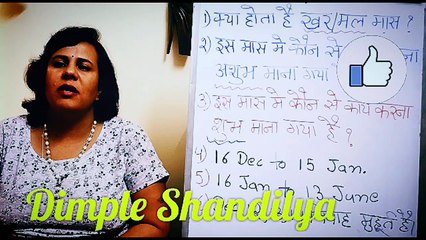 1) क्या होता है खर/मल मास ?
2) इस मास मे कौन से
अशुभ माना गया
3) इस मास मे कौन से कार्य करना
शुभ माना गया है ?
4) 16 Dec to 15 Jan.
5) 16 Jan to 13 June
मुहूर्त है।
Dimple Shandilya